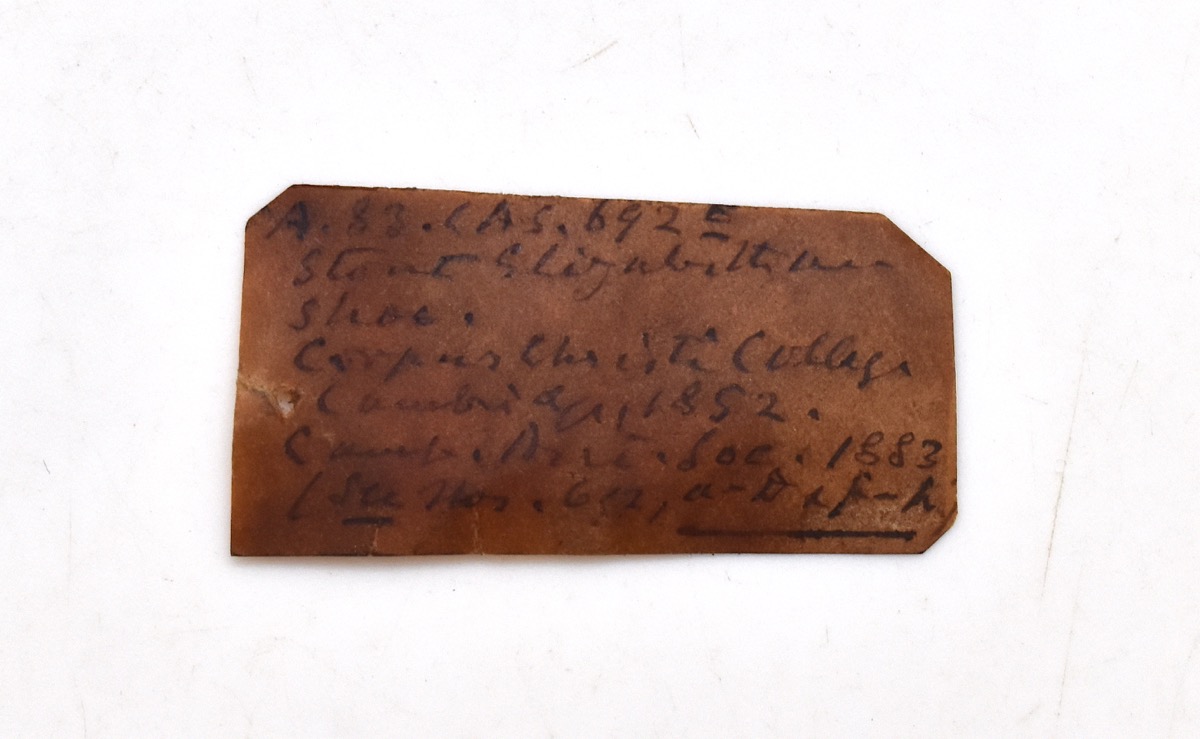 A.83.CAS.692 E
Stout Elizabethan
shoe.
Corpus Christi College
Cambridge, 1852.
Camb. Ant. Soc. 1883
(See Nos. 692, a-D & f-h